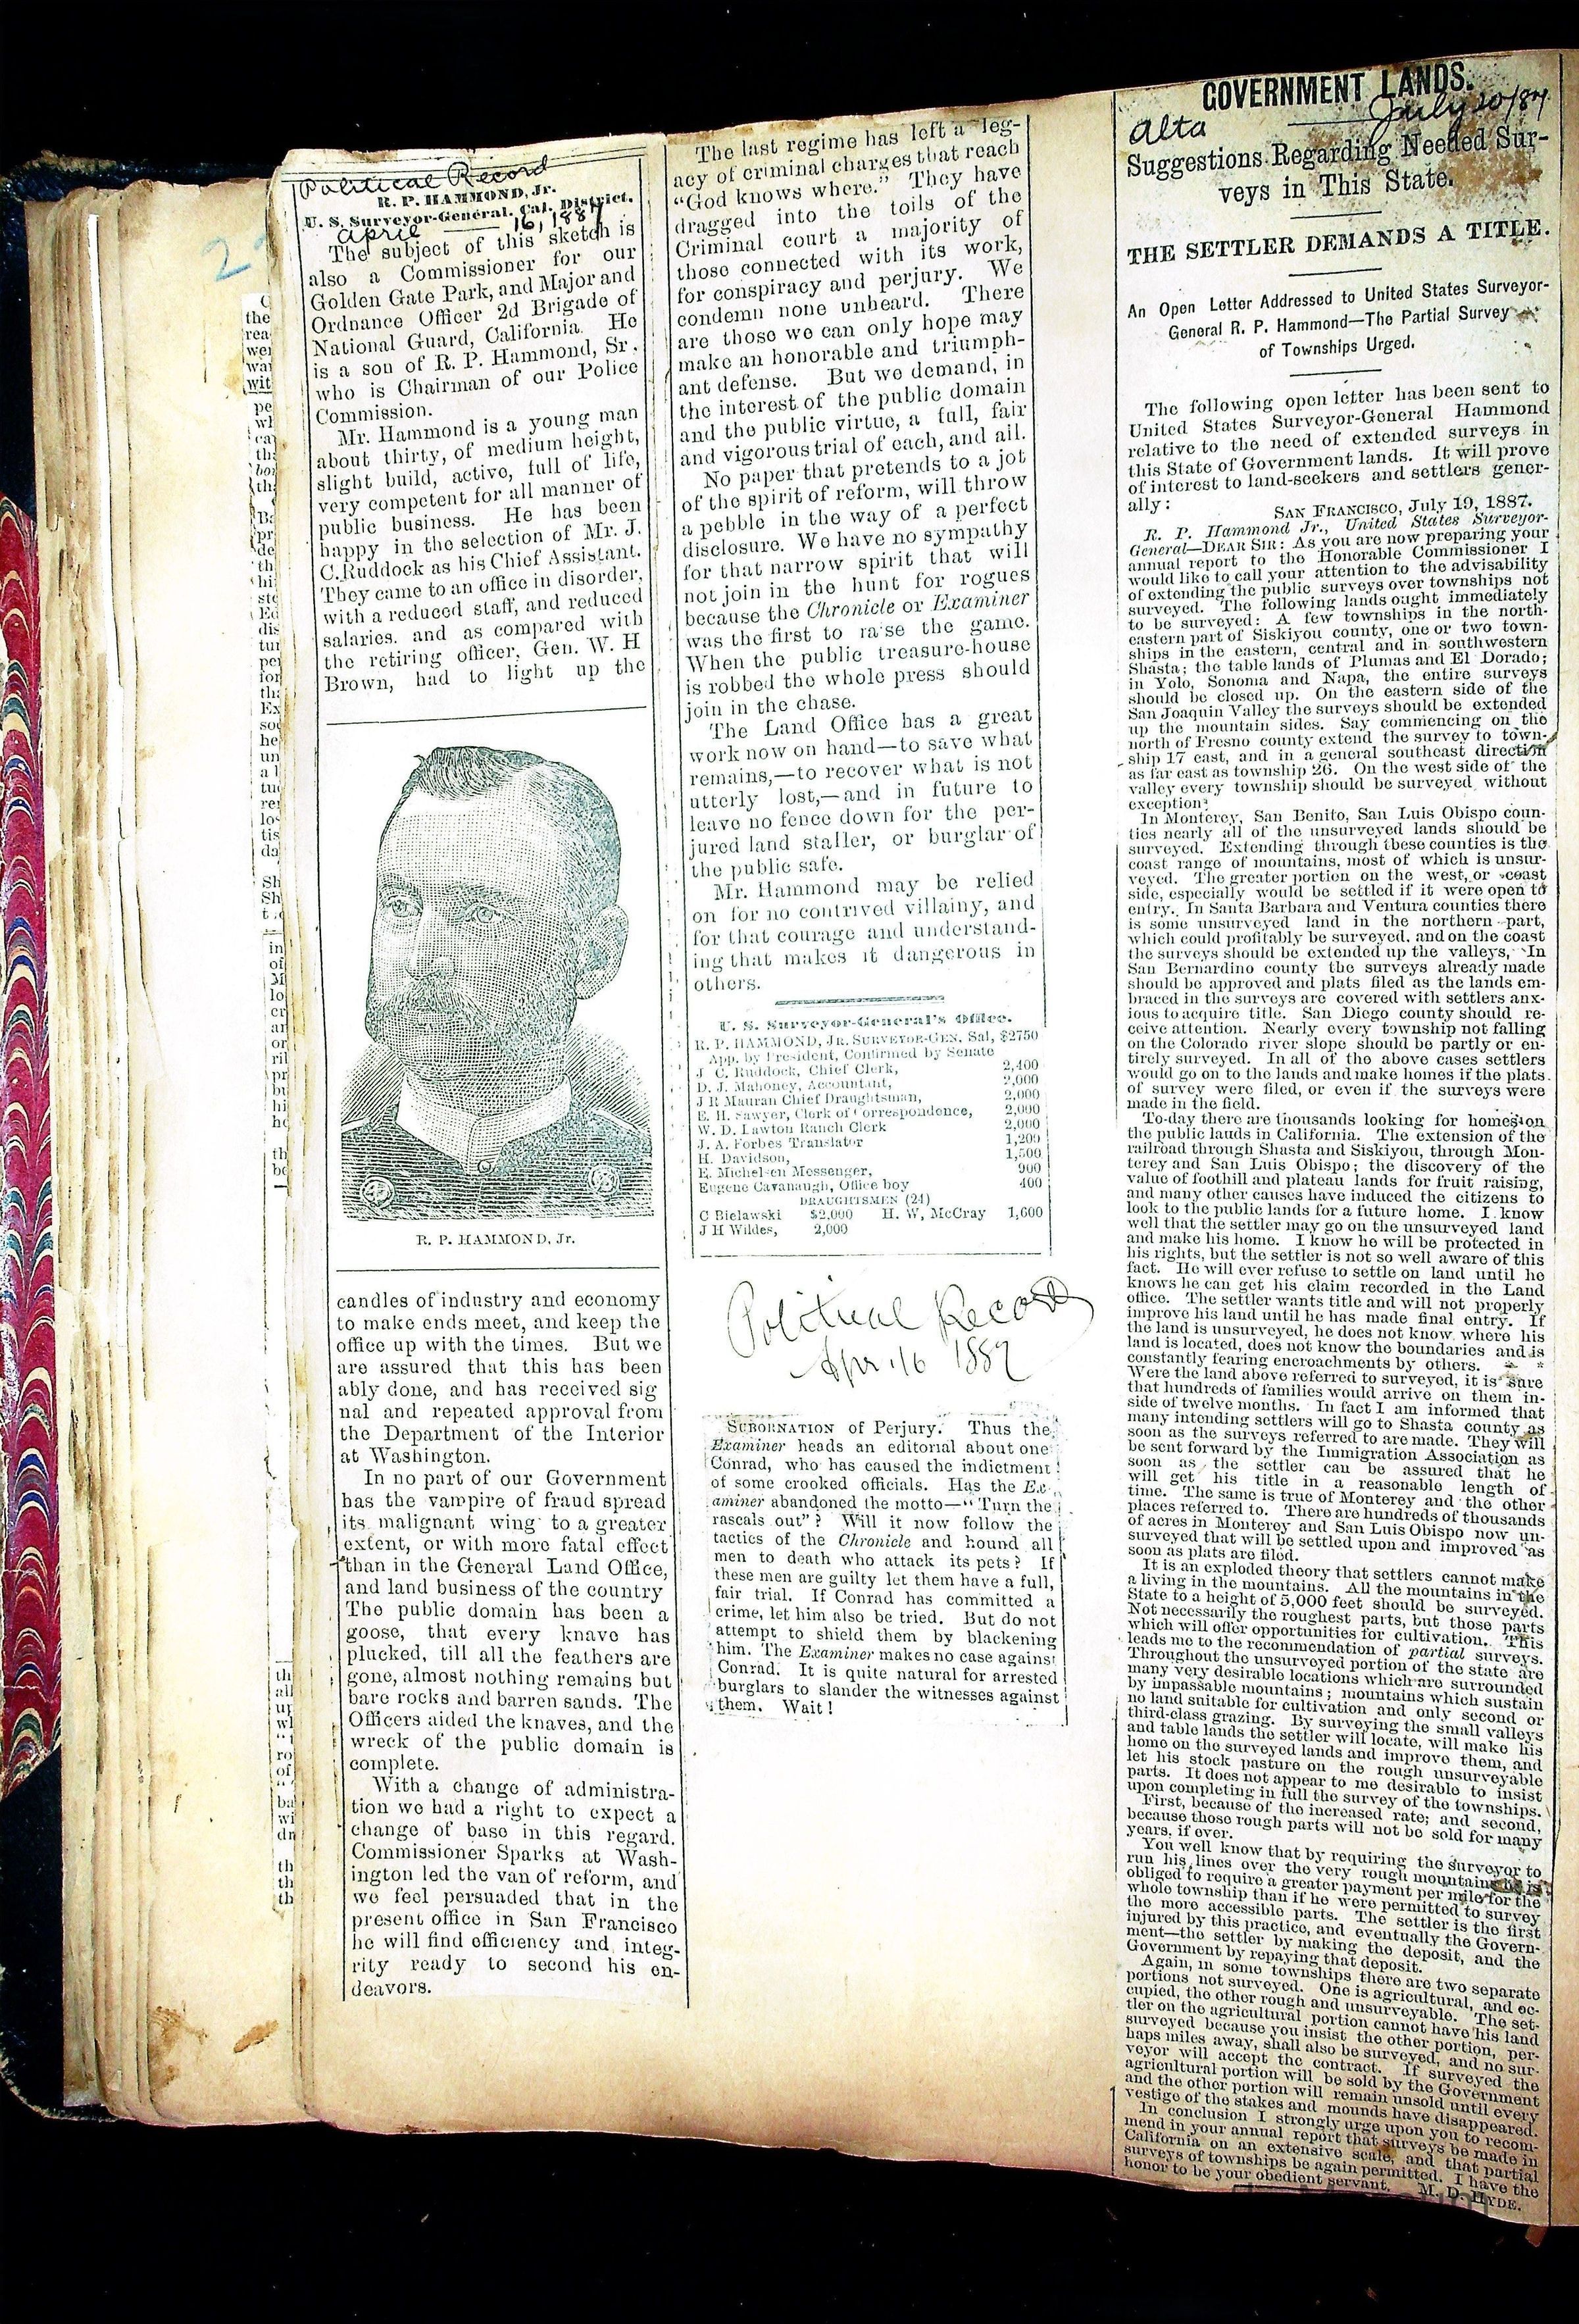 Political Record
R. P. HAMMOND, Jr.
U. S. Surveyor-General. Cal. District.
April 16, 1887
The subject of this sketch is
also a Commissioner for our
Golden Gate Park, and Major and
Ordnance Officer 2d Brigade of
National Guard, California. He
is a son of R. P. Hammond, Sr.
who is Chairman of our Police
Commission.
Mr. Hammond is a young man
about thirty, of medium height,
slight build, active, full of life,
very competent for all manner of
public business. He has been
happy in the selection of Mr. J.
C. Ruddock as his Chief Assistant.
They came to an office in disorder,
with a reduced staff, and reduced
salaries. and as compared with
the retiring officer, Gen. W. H
Brown, had to light up the
R. P. HAMMOND, Jr.
candles of industry and economy
to make ends meet, and keep the
office up with the times. But we
are assured that this has been
ably done, and has received sig
nal and repeated approval from
the Department of the Interior
at Washington.
In no part of our Government
has the vampire of fraud spread
its malignant wing to a greater
extent, or with more fatal effect
than in the General Land Office,
and land business of the country
The public domain has been a
goose, that every knave has
plucked, till all the feathers are
gone, almost nothing remains but
bare rocks and barren sands. The
Officers aided the knaves, and the
wreck of the public domain is
complete.
With a change of administra-
tion we had a right to expect a
change of base in this regard.
Commissioner Sparks at Wash-
ington led the van of reform, and
we feel persuaded that in the
present office in San Francisco
he will find efficiency and integ-
rity ready to second his en-
deavors.
The last regime has left a leg-
acy of criminal charges that reach
"God knows where." They have
dragged into the toils of the
Criminal court a majority of
those connected with its work,
for conspiracy and perjury. We
condemn none unheard. There
are those we can only hope may
make an honorable and triumph-
ant defense. But we demand, in
the interest of the public domain
and the public virtue, a full, fair
and vigorous trial of each, and all.
No paper that pretends to a jot
of the spirit of reform, will throw
a pebble in the way of a perfect
disclosure. We have no sympathy
for that narrow spirit that will
not join in the hunt for rogues
because the Chronicle or Examiner
was the first to raise the game.
When the public treasure-house
is robbed the whole press should
join in the chase.
The Land Office has a great
work now on hand—to save what
remains,—to recover what is not
utterly lost,—and in future to
leave no fence down for the per-
jured land staller, or burglar of
the public safe.
Mr. Hammond may be relied
on for no contrived villainy, and
for that courage and understand-
ing that makes it dangerous in
others.
U. S. Surveyor-General's Office.
R. P. HAMMOND, JR. SURVEYOR-GEN, Sal, $2750
App. by President, Confirmed by Senate
J C. Ruddock, Chief Clerk, 2,400
D. J. Mahoney, Accountant, 2,000
J R Mauran Chief Draughtsman, 2,000
E. H. Sawyer, Clerk of Correspondence, 2,000
W. D. Lawton Ranch Clerk 2,000
J. A. Forbes Translater 1,200
H. Davidson, 1,500
E. Michelsen Messenger, 900
Eugene Cavanaugh, Office boy 400
DRAUGHTSMEN (24)
C Bielawski $2,000 H. W, McCray 1,600
J H Wildes, 2,000
Political Record
Apr. 16 1887
SUBORNATION of Perjury. Thus the
Examiner heads an editorial about one
Conrad, who has caused the indictment
of some crooked officials. Has the Ex-
aminer abandoned the motto—"Turn the
rascals out"? Will it now follow the
tactics of the Chronicle and hound all
men to death who attack its pets? If
these men are guilty let them have a full,
fair trial. If Conrad has committed a
crime, let him also be tried. But do not
attempt to shield them by blackening
him. The Examiner makes no case against
Conrad. It is quite natural for arrested
burglars to slander the witnesses against
them. Wait!
GOVERNMENT LANDS.
Alta July 20/87
Suggestions Regarding Needed Sur-
veys in This State.
THE SETTLER DEMANDS A TITLE.
An Open Letter Addressed to United States Surveyor-
General R. P. Hammond—The Partial Survey
of Townships Urged.
The following open letter has been sent to
United States Surveyor-General Hammond
relative to the need of extended surveys in
this State of Government lands. It will prove
of interest to land-seekers and settlers gener-
ally:
SAN FRANCISCO, July 19, 1887.
R. P. Hammond Jr., United States Surveyor-
General—DEAR SIR: As you are now preparing your
annual report to the Honorable Commissioner I
would like to call your attention to the advisability
of extending the public surveys over townships not
surveyed. The following lands ought immediately
to be surveyed: A few townships in the north-
eastern part of Siskiyou county, one or two town-
ships in the eastern, central and in southwestern
Shasta; the table lands of Plumas and El Dorado;
in Yolo, Sonoma and Napa, the entire surveys
should be closed up. On the eastern side of the
San Joaquin Valley the surveys should be extended
up the mountain sides. Say commencing on the
north of Fresno county extend the survey to town-
ship 17 east, and in a general southeast direction
as far east as township 26. On the west side of the
valley every township should be surveyed without
exception.
In Monterey, San Benito, San Luis Obispo coun-
ties nearly all of the unsurveyed lands should be
surveyed. Extending through these counties is the
coast range of mountains, most of which is unsur-
veyed. The greater portion on the west, or coast
side, especially would be settled if it were open to
entry. In Santa Barbara and Ventura counties there
is some unsurveyed land in the northern part,
which could profitably be surveyed. and on the coast
the surveys should be extended up the valleys, In
San Bernardino county the surveys already made
should be approved and plats filed as the lands em-
braced in the surveys are covered with settlers anx-
ious to acquire title. San Diego county should re-
ceive attention. Nearly every township not falling
on the Colorado river slope should be partly or en-
tirely surveyed. In all of the above cases settlers
would go on to the lands and make homes if the plats
of survey were filed, or even if the surveys were
made in the field.
To-day there are thousands looking for homes on
the public lands in California. The extension of the
railroad through Shasta and Siskiyou, through Mon-
terey and San Luis Obispo; the discovery of the
value of foothill and plateau lands for fruit raising,
and many other causes have induced the citizens to
look to the public lands for a future home. I know
well that the settler may go on the unsurveyed land
and make his home. I know he will be protected in
his rights, but the settler is not so well aware of this
fact. He will ever refuse to settle on land until he
knows he can get his claim recorded in the Land
office. The settler wants title and will not properly
improve his land until he has made final entry. If
the land is unsurveyed, he does not know where his
land is located, does not know the boundaries and is
constantly fearing encroachments by others. * *
Were the land above referred to surveyed, it is sure
that hundreds of families would arrive on them in-
side of twelve months. In fact I am informed that
many intending settlers will go to Shasta county as
soon as the surveys referred to are made. They will
be sent forward by the Immigration Association as
soon as the settler can be assured that he
will get his title in a reasonable length of
time. The same is true of Monterey and the other
places referred to. There are hundreds of thousands
of acres in Monterey and San Luis Obispo now un-
surveyed that will be settled upon and improved as
soon as plats are filed.
It is an exploded theory that settlers cannot make
a living in the mountains. All the mountains in the
State to a height of 5,000 feet should be surveyed.
Not necessarily the roughest parts, but those parts
which will offer opportunities for cultivation. This
leads me to the recommendation of partial surveys.
Throughout the unsurveyed portion of the state are
many very desirable locations which are surrounded
by impassable mountains; mountains which sustain
no land suitable for cultivation and only second or
third-class grazing. By surveying the small valleys
and table lands the settler will locate, will make his
home on the surveyed lands and improve them, and
let his stock pasture on the rough unsurveyable
parts. It does not appear to me desirable to insist
upon completing in full the survey of the townships.
First, because of the increased rate; and second,
because those rough parts will not be sold for many
years, if ever.
You well know that by requiring the surveyor to
run his lines over the very rough mountains he is
obliged to require a greater payment per mile for the
whole township than if he were permitted to survey
the more accessible parts. The settler is the first
injured by this practice, and eventually the Govern-
ment—the settler by making the deposit, and the
Government by repaying that deposit.
Again, in some townships there are two separate
portions not surveyed. One is agricultural, and oc-
cupied, the other rough and unsurveyable. The set-
tler on the agricultural portion cannot have his land
surveyed because you insist the other portion, per-
haps miles away, shall also be surveyed, and no sur-
veyor will accept the contract. If surveyed the
agricultural portion will be sold by the Government
and the other portion will remain unsold until every
vestige of the stakes and mounds have disappeared.
In conclusion I strongly urge upon you to recom-
mend in your annual report that surveys be made in
California on an extensive scale, and that partial
surveys of townships be again permitted. I have the
honor to be your obedient servant, M. D. HYDE.